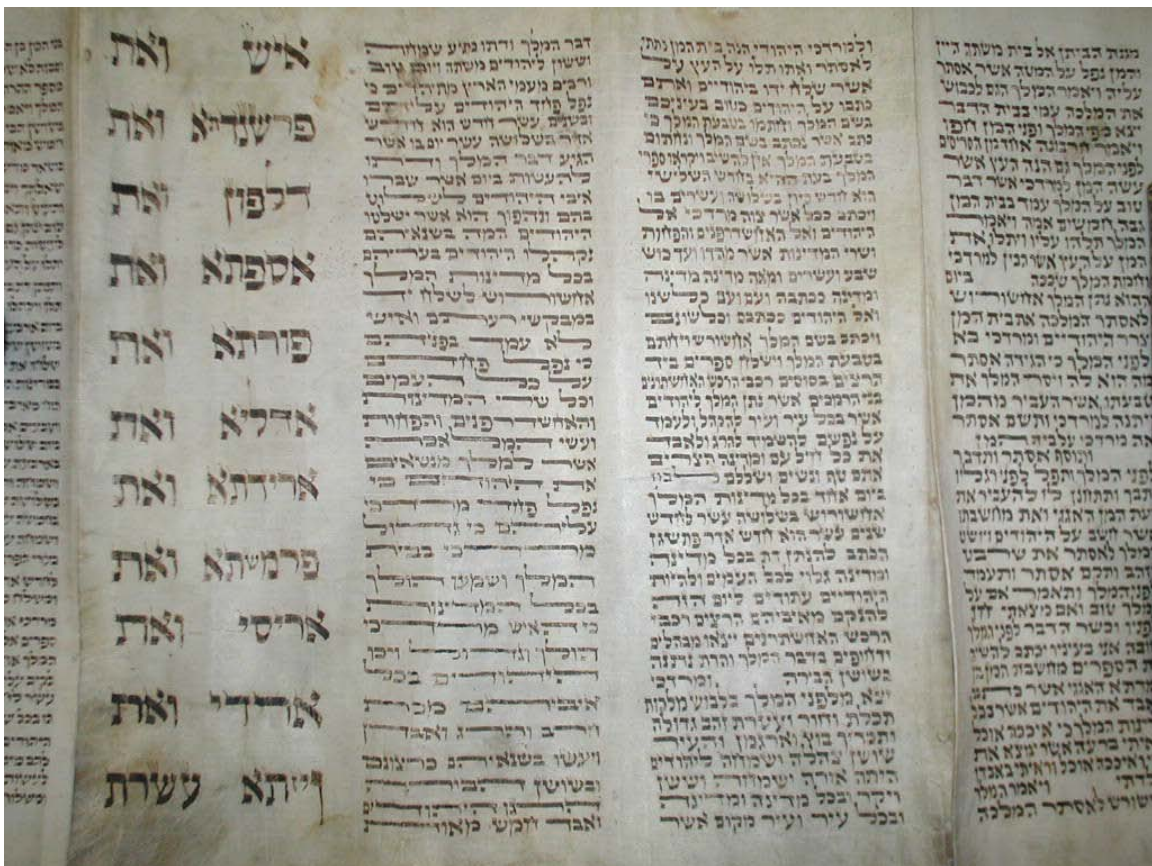 מגנת הביתן אל בית משתה היין
והמן נפל על המטה אשר אסתר
עליה ויאמר המלך הגם לכבוש
את המלכה עמי בבית הדבר
יצא מפי המלך ופני המן חפו
ויאמר חרבונה אחד מן הסריסים
לפני המלך גם הנה העץ אשר
עשה המן למרדכי אשר דבר
טוב על המלך עמד בבית המן
גבה חמשים אמה ויאמר
המלך תלהו עליו ויתלו את
המן על העץ אשר הכין למרדכי
וחמת המלך שככה ביום
ההוא נתן המלך אחשורוש
לאסתר המלכה את בית המן
צרר היהודיים ומרדכי בא
לפני המלך כי הגידה אסתר
מה הוא לה ויסר המלך את
טבעתו אשר העביר מהמן
ויתנה למרדכי ותשם אסתר
את מרדכי על בית המן
ותוסף אסתר ותדבר
לפני המלך ותפל לפני רגליו
ותבך ותתחנן לו להעביר את
רעת המן האגגי ואת מחשבתו
אשר חשב על היהודים ויושט
המלך לאסתר את שרבט
הזהב ותקם אסתר ותעמד
לפני המלך ותאמר אם על
המלך טוב ואם מצאתי חן
לפניו וכשר הדבר לפני המלך
וטבה אני בעיניו יכתב להשיב
את הספרים מחשבת המן בן
המדתא האגגי אשר כתב
לאבד את היהודים אשר בכל
מדינות המלך כי איככה אוכל
וראיתי ברעה אשר ימצא את
עמי ואיככה אוכל וראיתי באבדן
מולדתי ויאמר המלך
אחשורש לאסתר המלכה
ולמרדכי היהודי הנה בית המן נתתי
לאסתר ואתו תלו על העץ על
אשר שלח ידו ביהודיים ואתם
כתבו על היהודים כטוב בעיניכם
בשם המלך וחתמו בטבעת המלך כי
כתב אשר נכתב בשם המלך ונחתום
בטבעת המלך אין להשיב ויקראו ספרי
המלך בעת ההיא בחדש השלישי
הוא חדש סיון בשלושה ועשרים בו
ויכתב ככל אשר צוה מרדכי אל
היהודים ואל האחשדרפנים והפחות
ושרי המדינות אשר מהדו ועד כוש
שבע ועשרים ומאה מדינה מדינה
ומדינה ככתבה ועם ועם כלשנו
ואל היהודים ככתבם וכלשונם
ויכתב בשם המלך אחשורש ויחתם
בטבעת המלך וישלח ספרים ביד
הרצים בסוסים רכבי הרכש האחשתרנים
בני הרמכים אשר נתן המלך ליהודים
אשר בכל עיר ועיר להקהל ולעמד
על נפשם להשמיד להרג ולאבד
את כל חיל עם ומדינה הצרים
אתם טף ונשים ושללם לבוז
ביום אחד בכל מדינות המלך
אחשורוש בשלושה עשר לחדש
שנים עשר הוא חדש אדר פתשגן
הכתב להנתן דת בכל מדינה
ומדינה גלוי לכל העמים ולהיות
היהודיים עתודים ליום הזה
להנקם מאיביהם הרצים רכבי
הרכש האחשתרנים יצאו מבהלים
ודחופים בדבר המלך והדת נתנה
בשושן הבירה ומרדכי
יצא מלפני המלך בלבוש מלכות
תכלת וחור ועטרת זהב גדולה
ותכריך בוץ וארגמן והעיר
שושן צהלה ושמחה ליהודים
היתה אורה ושמחה וששן
ויקר ובכל מדינה ומדינה
ובכל עיר ועיר מקום אשר
דבר המלך ודתו מגיע שמחה
וששון ליהודים משתה ויום טוב
ורבים מעמי הארץ מתיהדים כי
נפל פחד היהודים עליהם
ובשנים עשר חדש הוא חדש
אדר בשלושה עשר יום בו אשר
הגיע דבר המלך ודתו
להעשות ביום אשר שברו
איבי היהודים לשלוט
בהם ונהפוך הוא אשר ישלטו
היהודים המה בשנאיהם
נקהלו היהודים בעריהם
בכל מדינות המלך
אחשורוש לשלח יד
במבקשי רעתם ואיש
לא עמד בפניהם
כי נפל פחדם
על כל העמים
וכל שרי המדינות
והאחשדרפנים והפחות
ועשי המלאכה
אשר למלך מנשאים
את היהודים כי
נפל פחד מרדכי
עליהם כי גדול
מרדכי בבית
המלך ושמעו הולך
בכל המדינות
כי האיש מרדכי
הולך וגדול ויכו
היהודים בכל
איביהם מכת
חרב והרג ואבדן
ויעשו בשנאיהם כרצונם
ובשושן הבירה
הרגו היהודים
ואבד חמש מאות
איש ואת
פרשנדתא ואת
דלפון ואת
אספתא ואת
פורתא ואת
אדליא ואת
ארידתא ואת
פרמשתא ואת
אריסי ואת
ארידי ואת
ויזתא עשרת